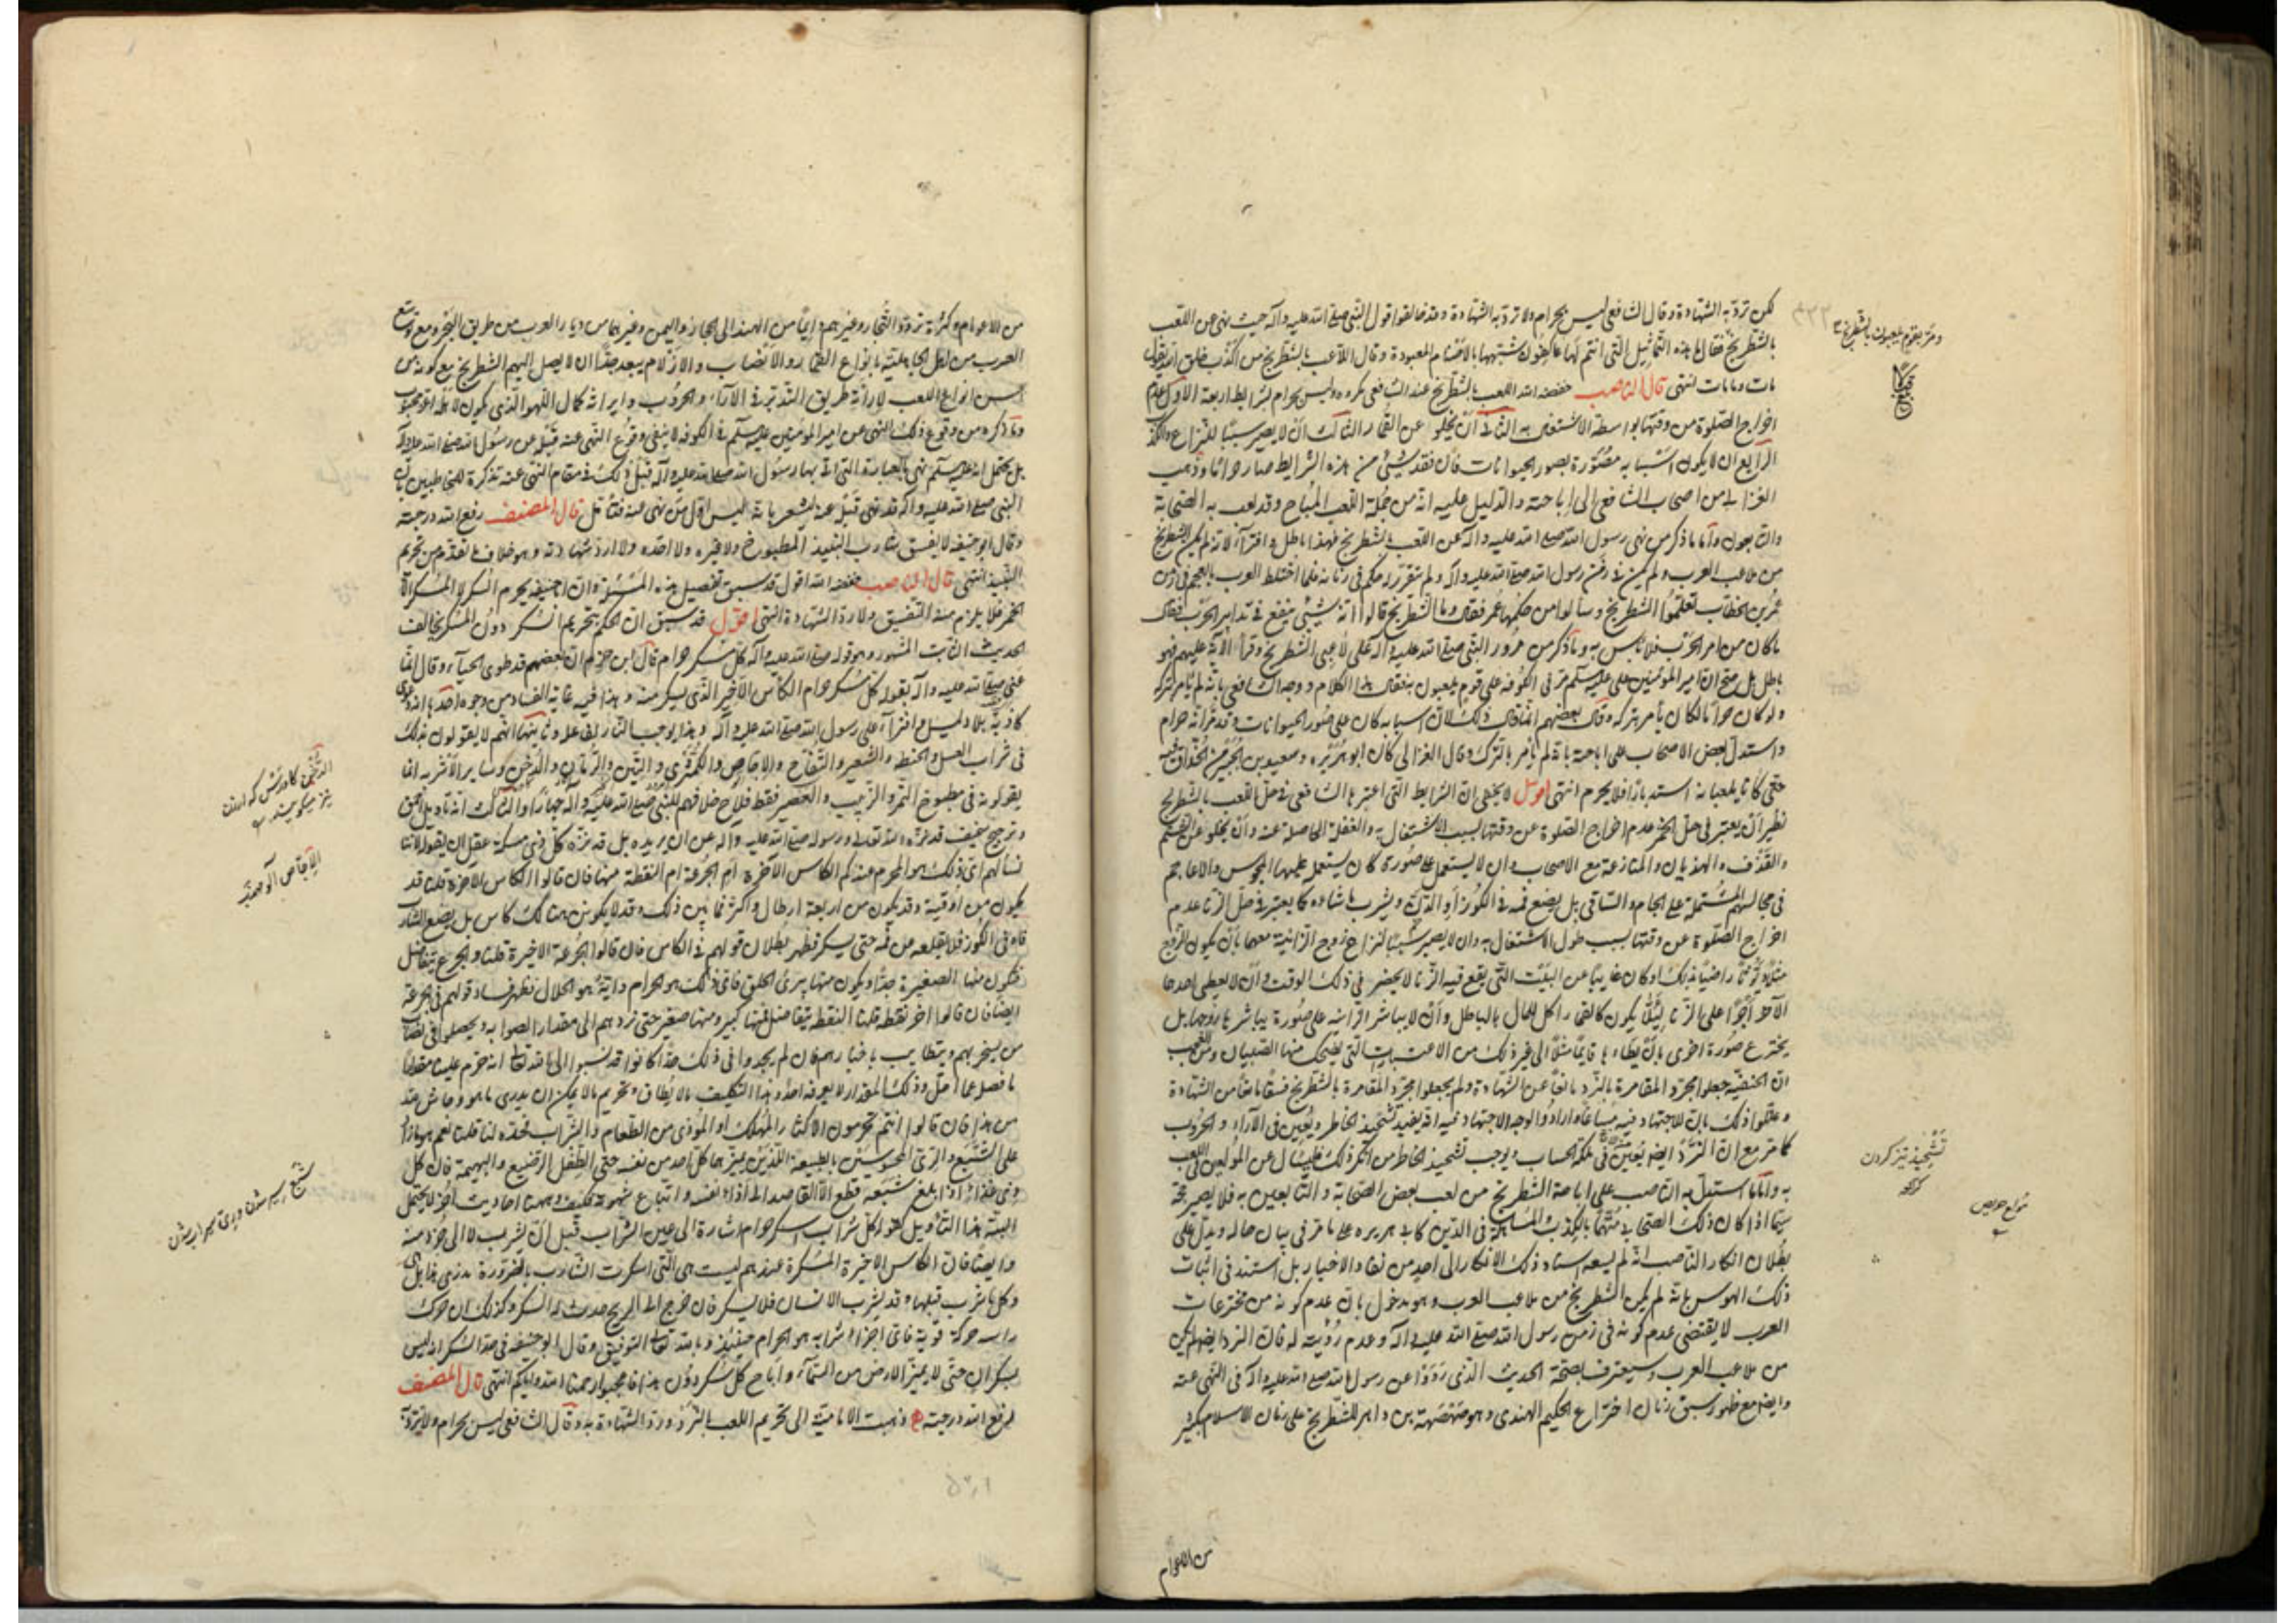 لكن تردّ به الشهادة وقال الشافعي ليس بحرام ولا تردّ به الشهادة وقد خالفوا قول النبي صلى الله عليه وآله حيث نهى عن اللعب
بالشطرنج فقال ما هذه التماثيل التي أنتم لها عاكفون شبّهها بالأصنام المعبودة وقال اللاعب بالشطرنج من أكذب خلق الله يقول
مات وما مات انتهى قال الناصب خفضه الله اللعب بالشطرنج عند الشافعي مكروه وليس بحرام بشرايط أربعة الأول عدم
اخراج الصلوة من وقتها بواسطة الاشتغال به الثاني أن يخلو عن القمار الثالث أن لا يصير سببا للنزاع
الرابع أن لا يكون أسبابه مصوّرة بصور الحيوانات فان فقد شيء من هذه الشرايط صار حراما وذهب
الغزالي من أصحاب الشافعي إلى إباحته والدليل عليه انه من جملة اللعب المباح وقد لعب به الصحابة
والتابعون وأما ما ذكر من نهي رسول الله صلى الله عليه وآله عن اللعب بالشطرنج فهذا باطل وافتراء لأنه لم يكن الشطرنج
من ملاعب العرب ولم يكن في زمن رسول الله صلى الله عليه وآله ولم تتقرر له حكم في زمانه فلما اختلط العرب بالعجم في زمن
عمر بن الخطاب تعلّموا الشطرنج وسألوا من حكمها عمر فقال وما الشطرنج قالوا انه شيء ينفع في تدابير الحرب فقال
ما كان من أمر الحرب فلا بأس به وما ذكر من مرور النبي صلى الله عليه وآله على لاعبي الشطرنج وقرأ الآية عليهم فهو
باطل بل صح ان أمير المؤمنين علي عليه السلم مرّ في الكوفة على قوم يلعبون به فقال هذا الكلام ووجه الشافعي بأنه لم يأمر بتركه
ولو كان حراما لكان يأمر بتركه وقال بعضهم انما قال ذلك لأن أسبابه كان على صور الحيوانات وقد مرّ انه حرام
واستدل بعض الأصحاب على إباحته بأنه لم يأمر بالترك وقال الغزالي كان أبو هريرة وسعيد بن
حتى كانا يلعبانه استدبارا فلا يحرم انتهى أقول لا يخفى ان الشرايط التي اعتبرها الشافعي في حلّ اللعب بالشطرنج
نظير أن يعتبر في حلّ الخمر عدم اخراج الصلوة عن وقتها بسبب الاشتغال به والغفلة الحاصلة عنه وأن يخلو عن الشتم
والقذف والهذيان والمنازعة مع الأصحاب وأن لا يستعمل على صورة كان يستعمل عليها المجوس والأعاجم
في مجالسهم المشتملة على الجام والساقي بل يضع فمه في الكوز أو الدنّ ويشرب ما شاء وكما يعتبر في حل الزنا عدم
اخراج الصلوة عن وقتها بسبب طول الاشتغال به وان لا يصير سببا لنزاع زوج الزانية معها بأن يكون الزوج
راضيا بذلك أو كان غايبا عن البيت التي يقع فيه الزنا لا يحضر في ذلك الوقت وأن لا يعطي أحدهما
الآخر أجرا على الزنا لئلا يكون كالقمار أكل المال بالباطل وأن لا يباشر الزانية على صورة يباشرها زوجها بل
يخترع صورة أخرى بأن يطاءها قائما مثلا إلى غير ذلك من الاعتبارات التي يضحك منها الصبيان ومن العجب
ان الحنفية جعلوا مجرد المقامرة بالنرد مانعا عن الشهادة ولم يجعلوا مجرد المقامرة بالشطرنج فسقا مانعا من الشهادة
وعلّلوا ذلك بان للاجتهاد فيه مساغا وأرادوا بوجه الاجتهاد فيه انه يفيد تشحيذ الخاطر ويعين في الآراء والحروب
كما مرّ مع ان النرد أيضا يعين في ملكة الحساب ويوجب تشحيذ الخاطر من الفكر ذلك فليسأل عن المولعين في اللعب
به وأما ما استدل به الناصب على إباحة الشطرنج من لعب بعض الصحابة والتابعين به فلا يصير حجة
سيّما إذا كان ذلك الصحابي متهما بالكذب والمساهلة في الدين كأبي هريرة على ما مرّ في بيان حاله ويدل على
بطلان انكار الناصب انه لم يسعه اسناد ذلك الانكار إلى أحد من نقاد الأخبار بل استند في اثبات
ذلك الهوس بأنه لم يكن الشطرنج من ملاعب العرب وهو مدخول بان عدم كونه من مخترعات
العرب لا يقتضي عدم كونه في زمن رسول الله صلى الله عليه وآله وعدم رؤيته له فان النرد أيضا لم يكن
من ملاعب العرب وسيعترف بصحة الحديث الذي رووا عن رسول الله صلى الله عليه وآله في النهي عنه
وأيضا مع ظهور سبق زمان اختراع الحكيم الهندي وهو صصه بن داهر للشطرنج على زمان الاسلام بكثير
ومرّ بقوم يلعبون بالشطرنج
تشحيذ تيز كردن
مولع حريص
من الأعوام
من الأعوام وكثرة تردد التجار وغيرهم إيابا من الهند إلى الحجاز واليمن وغيرهما من ديار العرب من طريق البحر ومع توسّع
العرب من أهل الجاهلية بأنواع القمار والأنصاب والأزلام يبعد جدا ان لا يصل اليهم الشطرنج مع كونه من
أحسن أنواع اللعب لإراءته طريق التدبير في الآراء والحروب وايراثه كمال اللهو الذي يكون لأهله
وما ذكره من وقوع ذلك النهي عن أمير المؤمنين عليه السلم في الكوفة لا ينفي وقوع النهي عنه قبل عن رسول الله صلى الله عليه وآله
بل يحتمل انه عليه السلم نهى بالعبارة التي أتى بها رسول الله صلى الله عليه وآله قبل ذلك في مقام النهي عنه تذكرة للمخاطبين بان
النبي صلى الله عليه وآله قد نهى قبل عنه ليشعر بأنه ليس أول من نهى عنه فتأمل قال المصنف رفع الله درجته
وقال أبو حنيفة لا يفسق شارب النبيذ المطبوخ ولا غيره ولا أحده ولا أردّ شهادته وهو خلاف ما تقدم من تحريم
النبيذ انتهى قال الناصب خفضه الله أقول قد سبق تفصيل هذه المسئلة وان أبا حنيفة يحرم السكر لا المسكر الا
الخمر فلا يلزم منه التفسيق ولا رد الشهادة انتهى أقول قد سبق ان الحكم بتحريم السكر دون المسكر مخالف
الحديث الثابت المشهور وهو قوله صلى الله عليه وآله كل مسكر حرام قال ابن حزم ان بعضهم قد طوى الحياء وقال انما
عنى صلى الله عليه وآله بقوله كل مسكر حرام الكأس الأخير الذي يسكر منه وهذا فيه غاية الفساد من وجوه أحدها انه دعوى
كاذبة بلا دليل وافتراء على رسول الله صلى الله عليه وآله وهذا يوجب النار لمن فعله وثانيها انهم لا يقولون بذلك
في شراب العسل والحنطة والشعير والتفاح والإجاص والكمثرى والتين والرمان والدخن وساير الأشربة انما
يقولونه في مطبوخ التمر والزبيب والعصير فقط فلاح خلافهم للنبي صلى الله عليه وآله جهارا والثالث انه تأويل أحمق
وتخريج سخيف قد نزه الله تعالى ورسوله صلى الله عليه وآله عن ان يريده بل قد نزه كل ذي مسكة عقل ان يقوله لانا
نسألهم أي ذلك هو المحرم عندكم الكأس الآخرة أم الجرعة أم النقطة منها فان قالوا الكأس الآخرة قلنا قد
يكون من أوقية وقد يكون من أربعة أرطال وأكثر فما بين ذلك وقد لا يكون هناك كأس بل يضع الشارب
فاه في الكوز فلا يقلعه عن فمه حتى يسكر فظهر بطلان قولهم في الكأس فان قالوا الجرعة الأخيرة قلنا والجرع يتفاضل
فتكون منها الصغيرة جدا ويكون منها ملء الحلق فأي ذلك هو الحرام وأيه هو الحلال فظهر فساد قولهم في الجرعة
أيضا فان قالوا آخر نقطة قلنا النقطة تتفاضل فمنها كبير ومنها صغير حتى نردهم إلى مقدار الصوابة ويحصلوا في نصاب
من يسخر بهم ويتطايب بأخبارهم فان لم يجدوا في ذلك حدا كانوا قد نسبوا إلى الله تعالى انه حرم علينا مقدارا
ما فصل عما أحل وذلك المقدار لا يعرفه أحد وهذا التكليف ما لا يطاق وتحريم ما لا يمكن ان يدرى ما هو وحاش لله
من هذا فان قالوا أنتم تحرمون الاكثار المهلك أو المؤذي من الطعام والشراب فحدّه لنا قلنا نعم هو ما زاد
على الشبع والري المحسوسين بالطبيعة اللذين يميزهما كل أحد من نفسه حتى الطفل الرضيع والبهيمة فان كل
ذي غذاء إذا بلغ شبعه قطع الا القاصد إلى أذى نفسه واتباع شهوته فكيف وههنا أحاديث أخر لا يحتمل
البتة هذا التأويل كقوله كل شراب أسكر حرام اشارة إلى عين الشراب قبل ان يشرب لا إلى جزء منه
وأيضا فان الكأس الأخيرة المسكرة عندهم ليست هي التي أسكرت الشارب بالضرورة
وكل ما شرب قبلها وقد يشرب الانسان فلا يسكر فان خرج إلى الريح حدث له السكر وكذلك ان حرّك
رأسه حركة قوية فأي أجزاء شرابه هو الحرام حينئذ وبالله تعالى التوفيق وقال أبو حنيفة في حد السكر انه ليس
بسكران حتى لا يميز الأرض من السماء وأباح كل سكر دون هذا فاعجبوا رحمنا الله وإياكم انتهى قال المصنف
رفع الله درجته ذهبت الامامية إلى تحريم اللعب بالنرد ورد الشهادة به وقال الشافعي ليس بحرام ولا تردّ به
الدخن كاورس كه ارزن
نيز ميكويند
الإجاص آلو
شبع سير شدن وري سيراب شدن